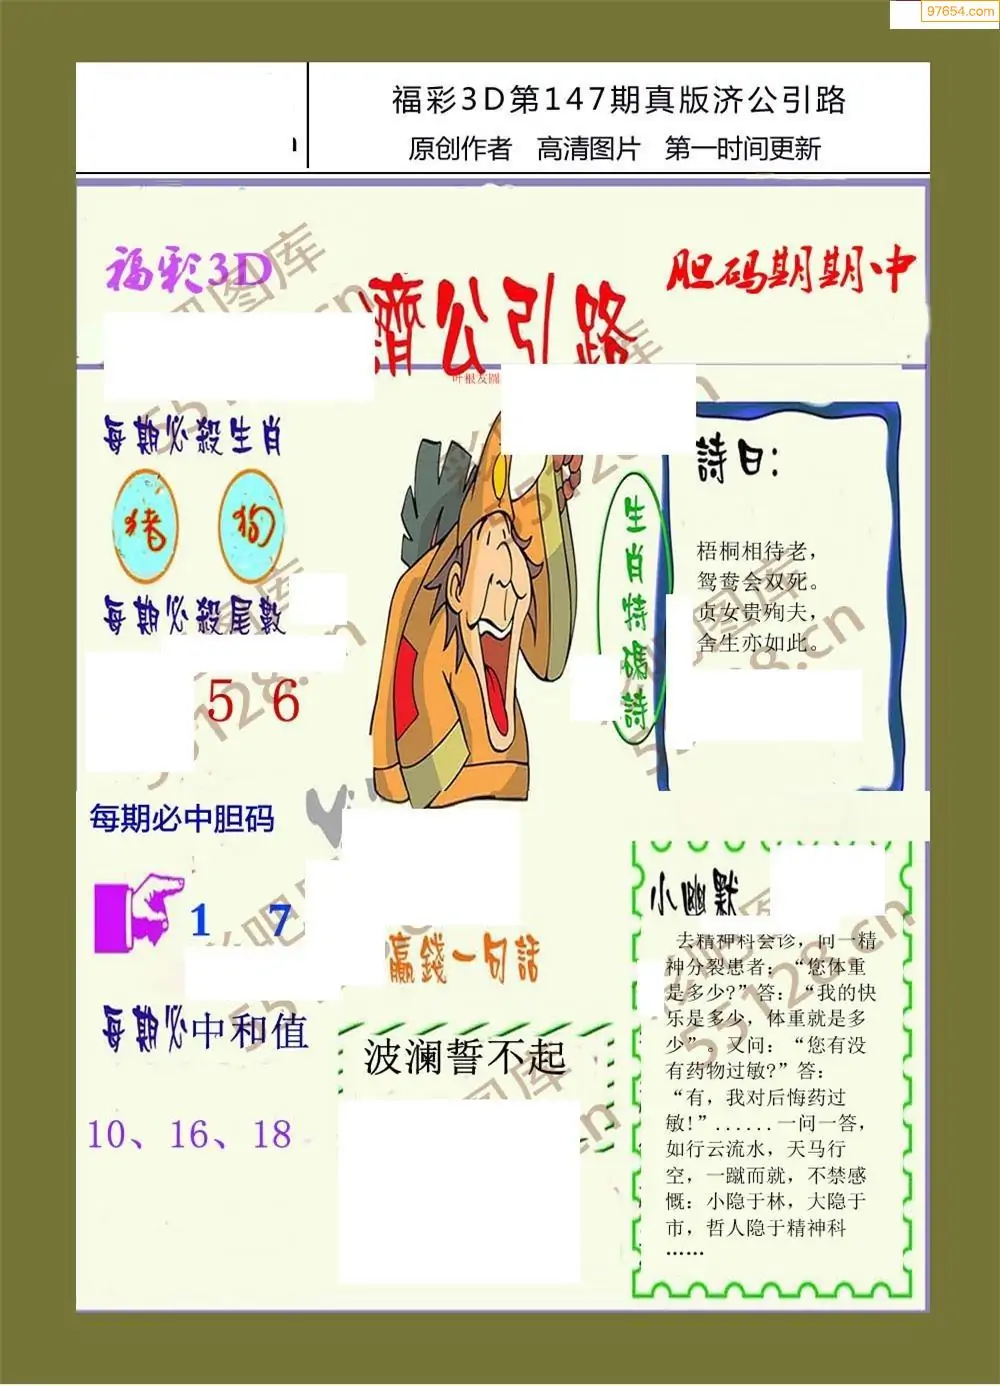 97654.com
福彩3D第147期真版济公引路
原创作者 高清图片 第一时间更新
福彩3D
濟公引路
胆码期期中
叶根友圆
每期必殺生肖
猪 狗
每期必殺尾數
5 6
每期必中胆码
1 7
每期必中和值
10、16、18
生肖特碼詩
詩曰:
梧桐相待老，
鸳鸯会双死。
贞女贵殉夫，
舍生亦如此。
赢錢一句話
波澜誓不起
小幽默
去精神科会诊，问一精
神分裂患者：“您体重
是多少?”答：“我的快
乐是多少，体重就是多
少”。又问：“您有没
有药物过敏?”答：
“有，我对后悔药过
敏!”......一问一答，
如行云流水，天马行
空，一蹴而就，不禁感
慨：小隐于林，大隐于
市，哲人隐于精神科
……
55128.cn